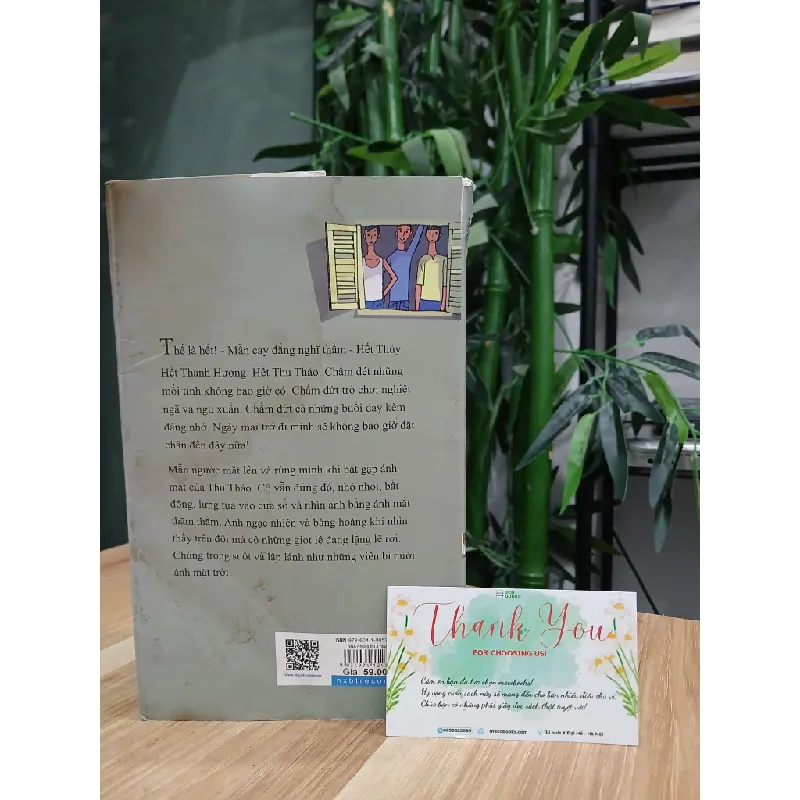 Thế là hết! - Mẫn cay đắng nghĩ thầm - Hết Thủy
Hết Thanh Hương. Hết Thu Thảo. Chấm dứt những
mối tình không bao giờ có. Chấm dứt trò chơi nghiệt
ngã và ngu xuẩn. Chấm dứt cả những buổi dạy kèm
đáng nhớ. Ngày mai trở đi mình sẽ không bao giờ đặt
chân đến đây nữa!
Mẫn ngước mắt lên và rùng mình khi bắt gặp ánh
mắt của Thu Thảo. Cô vẫn đứng đó, nhỏ nhoi, bất
động, lưng tựa vào cửa sổ và nhìn anh bằng ánh mắt
thăm thẳm. Anh ngạc nhiên và bàng hoàng khi nhìn
thấy trên đôi má cô những giọt lệ đang lặng lẽ rơi.
Chúng trong suốt và lấp lánh như những viên bi dưới
ánh mặt trời.
ISBN
Giá: 59.00
Thank You
FOR CHOOSING US!
Cảm ơn bạn đã lựa chọn
Hy vọng cuốn sách này sẽ mang đến cho bạn nhiều điều thú vị.
Chúc bạn có những phút giây đọc sách thật tuyệt vời!